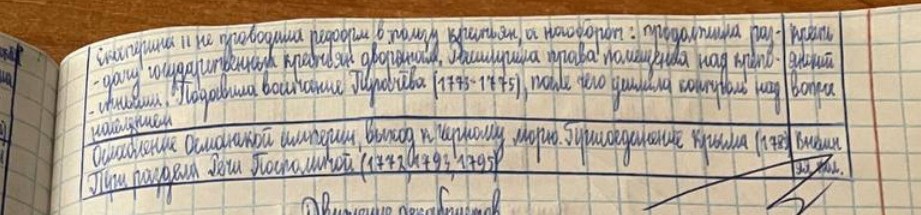 Екатерина II не проводила реформ в пользу крестьян, а наоборот: продолжила раз- крестья
-дачу государственных крестьян дворянам. Расширила права помещиков над крепо- янский
-стными. Подавила восстание Пугачёва (1773-1775), после чего усилила контроль над вопрос
населением
Ослабление Османской империи, выход к Чёрному морю. Присоединение Крыма (1783) Внешн
Три раздела Речи Посполитой (1772, 1793, 1795)
Движение декабристов